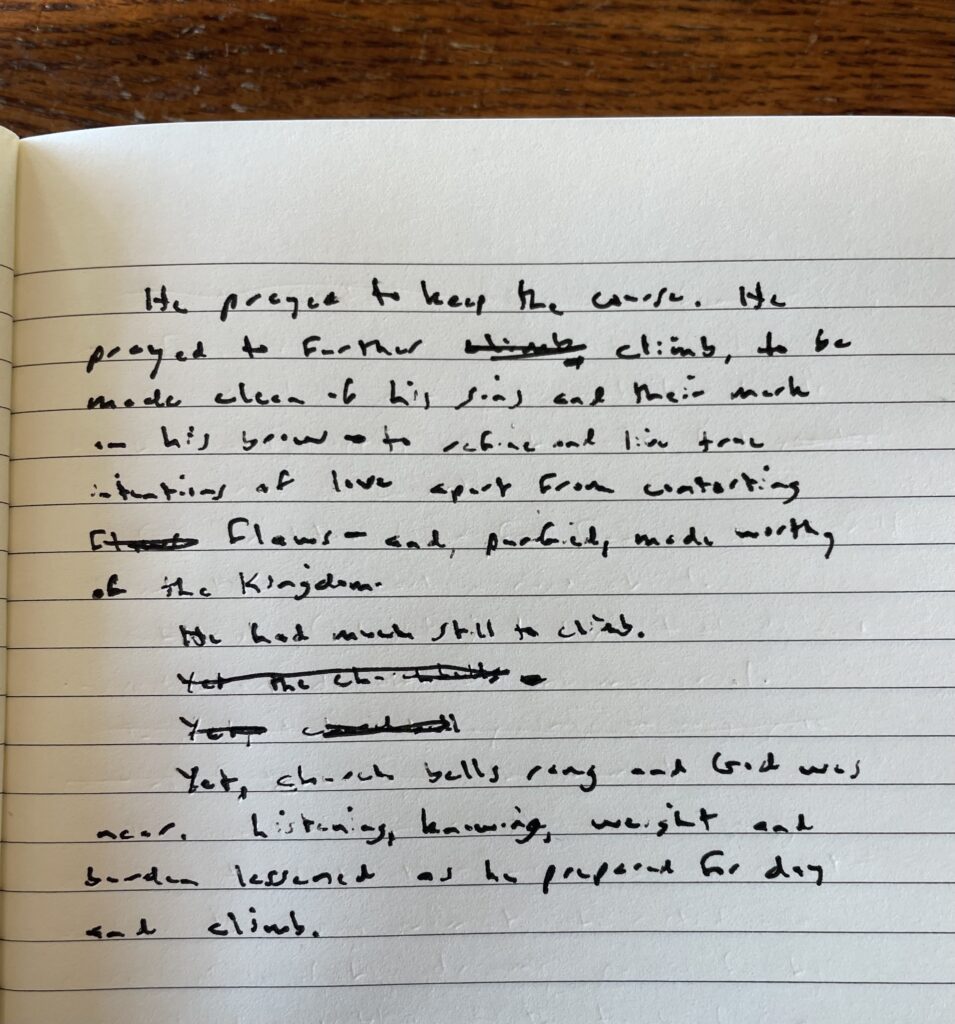 He prayed to keep the course. He
prayed to further climb climb, to be
made clean of his sins and their mark
on his brow - to refine and live true
intentions of love apart from contorting
Flaws Flaws - and, purified, made worthy
of the Kingdom.
He had much still to climb.
Yet the church bells
Yet,
Yet, church bells rang and God was
near. Listening, knowing, weight and
burden lessened as he prepared for day
and climb.